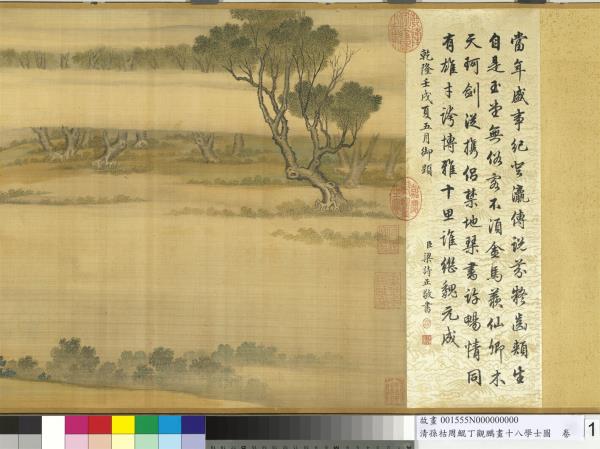 當年盛事紀登瀛傳說芬凝齒頰生
自是玉堂無俗客不須金馬羨仙卿木
天珂劍從攜侶禁地琴書許暢情同
有雄才誇博雅十思誰繼魏元成
乾隆壬戌夏五月御題
臣梁詩正敬書
故畫 001555N000000000
清孫祜周鯤丁觀鵬畫十八學士圖 卷
1